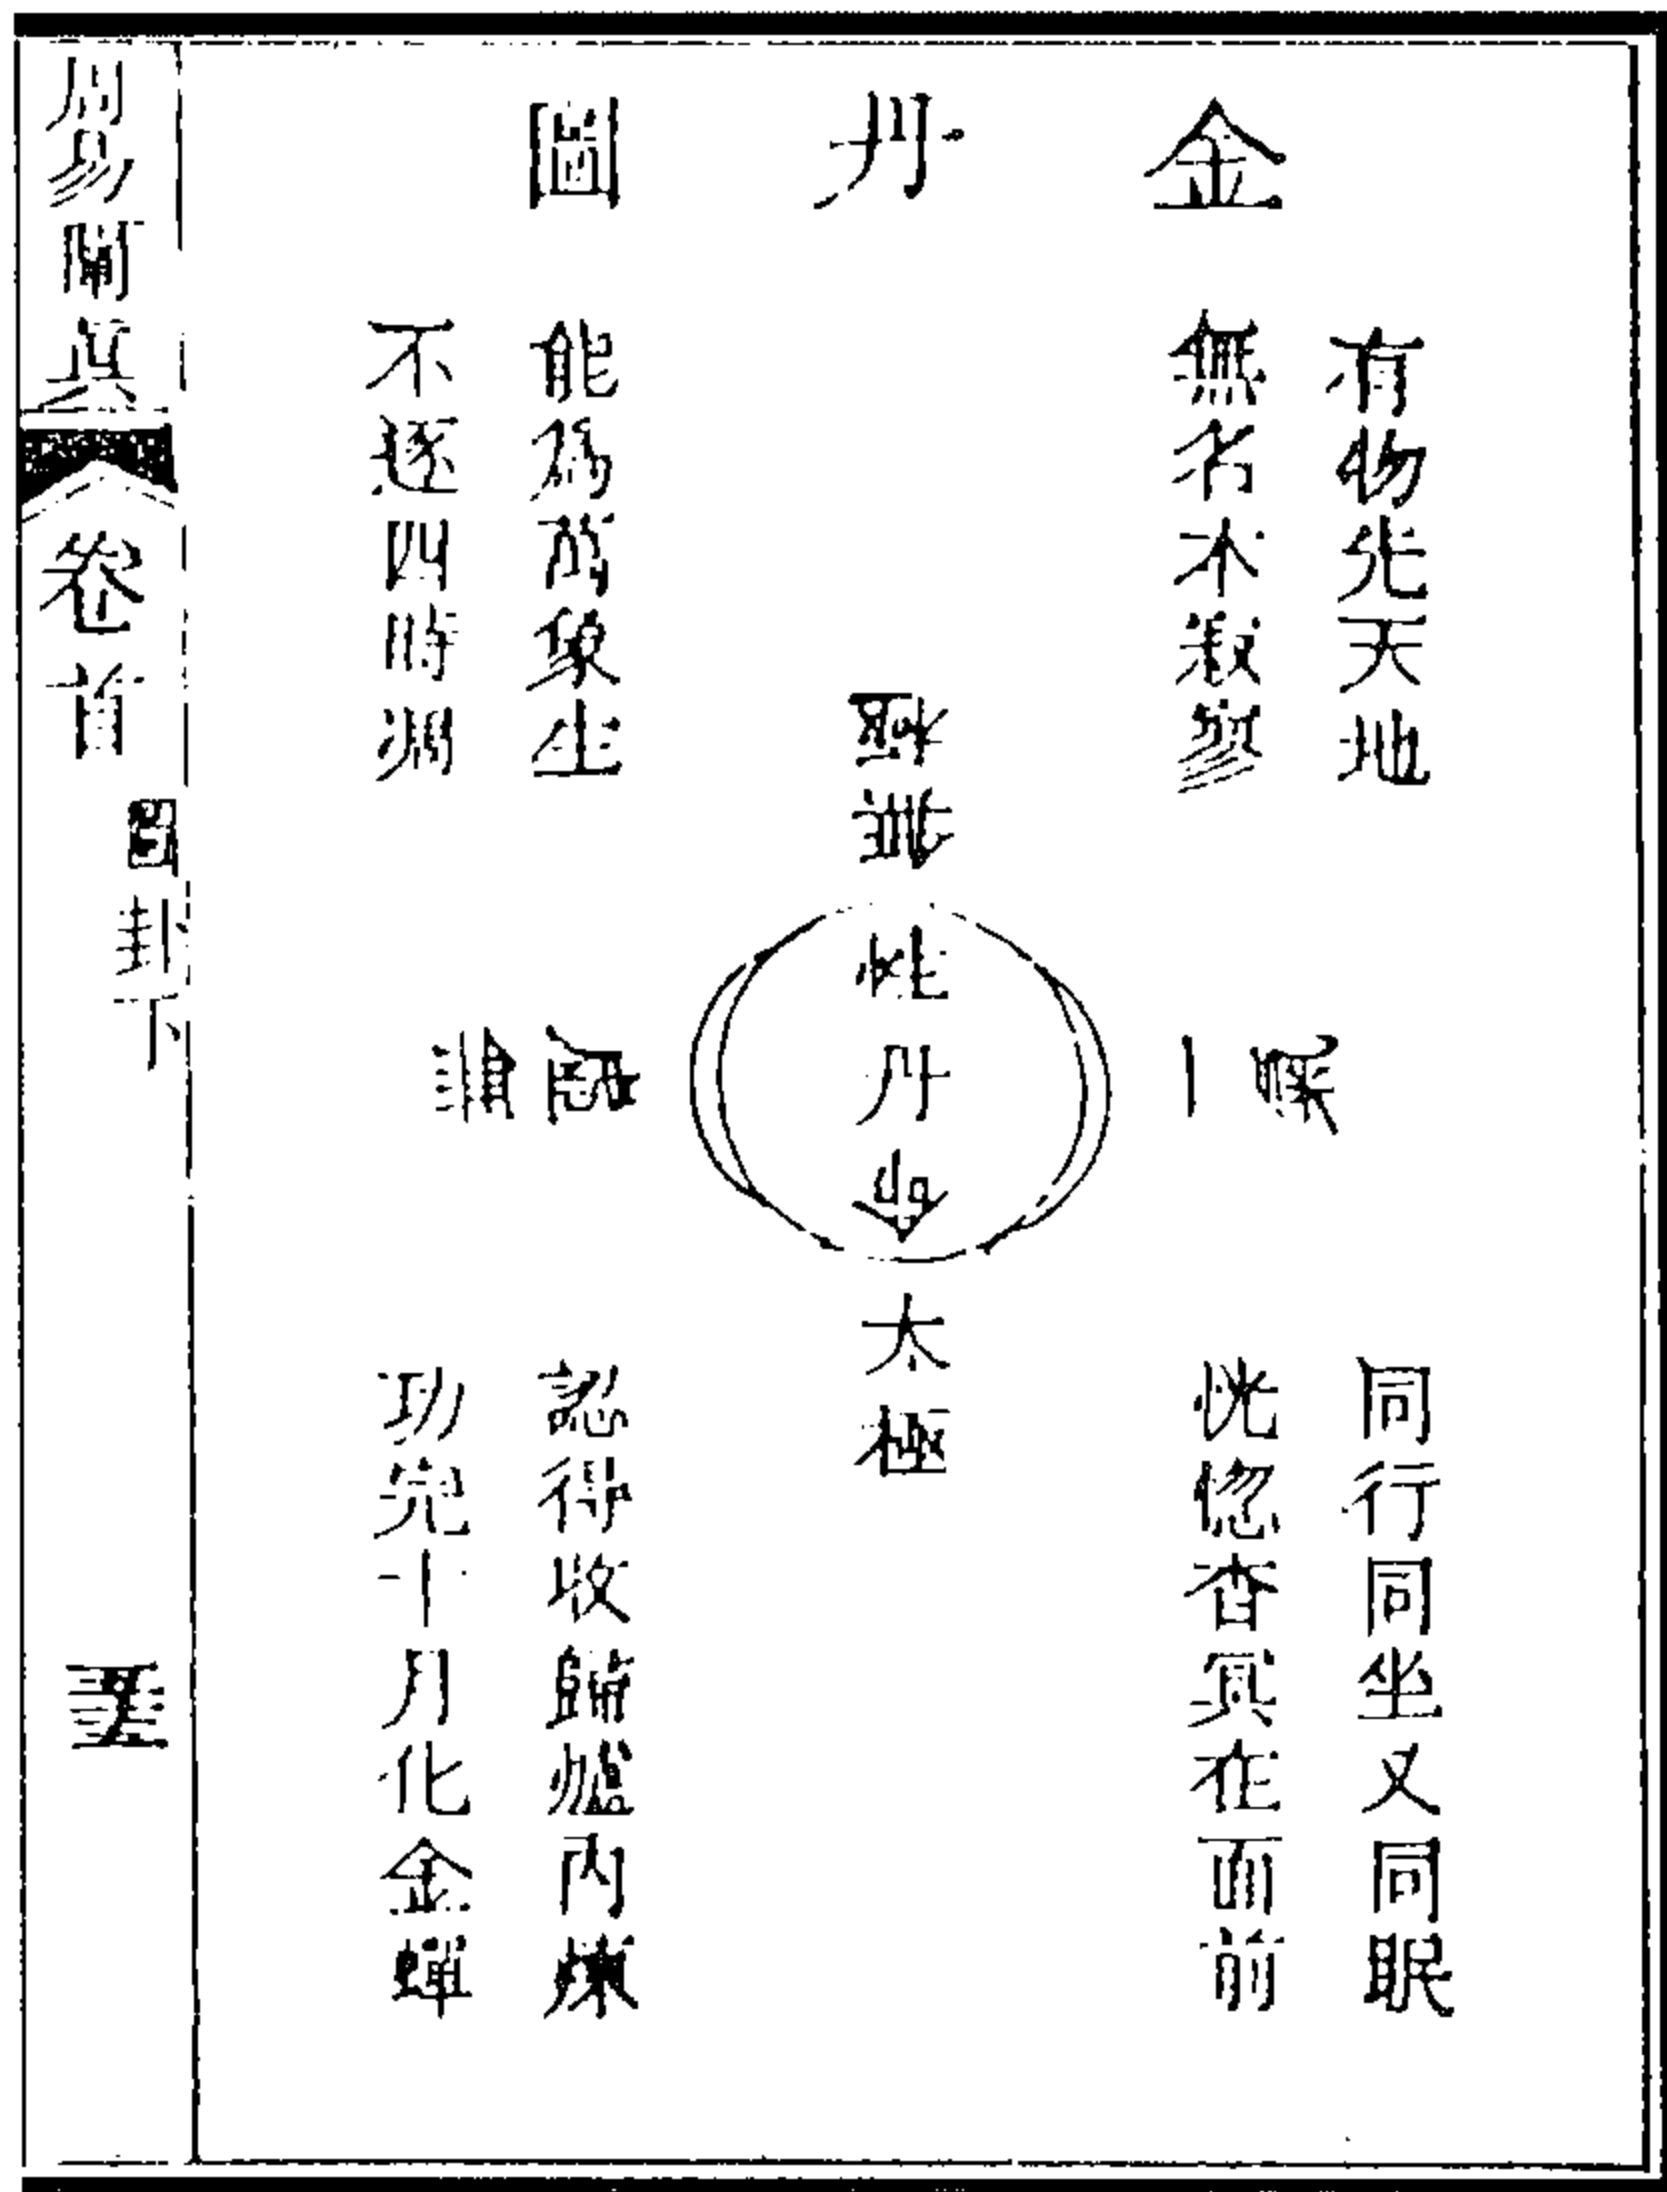 金丹圖
有物先天地
無名本寂寥
能為萬象生
不逐四時凋
性丹
太極
同行同坐又同眠
恍惚杳冥在面前
認得收歸爐內煉
功完十月化金蟬
周易闡真
卷首
圖卦下